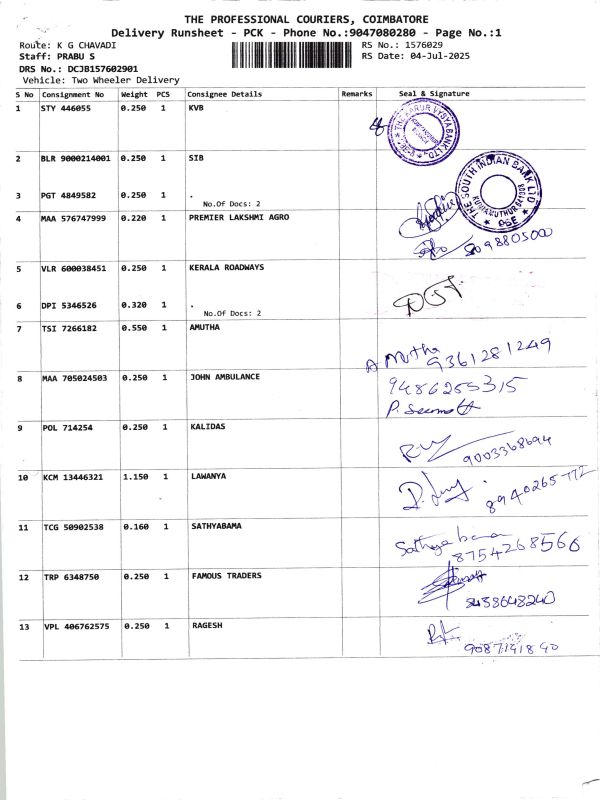 THE PROFESSIONAL COURIERS, COIMBATORE
Delivery Runsheet - PCK - Phone No.:9047080280 - Page No.:1
Route: K G CHAVADI RS No.: 1576029
Staff: PRABU S RS Date: 04-Jul-2025
DRS No.: DCJB157602901
Vehicle: Two Wheeler Delivery
S No Consignment No Weight PCS Consignee Details Remarks Seal & Signature
1 STY 446055 0.250 1 KVB
THE KARUR VYSYA BANK LTD.
2 BLR 9000214001 0.250 1 SIB
THE SOUTH INDIAN BANK LTD
3 PGT 4849582 0.250 1 .
No.Of Docs: 2
4 MAA 576747999 0.220 1 PREMIER LAKSHMI AGRO
5 VLR 600038451 0.250 1 KERALA ROADWAYS
6 DPI 5346526 0.320 1 .
No.Of Docs: 2
7 TSI 7266182 0.550 1 AMUTHA
Amutha 9361281249
8 MAA 705024503 0.250 1 JOHN AMBULANCE
9486255315
9 POL 714254 0.250 1 KALIDAS
9003368694
10 KCM 13446321 1.150 1 LAWANYA
8940265772
11 TCG 50902538 0.160 1 SATHYABAMA
Sathyabama
8754268566
12 TRP 6348750 0.250 1 FAMOUS TRADERS
13 VPL 406762575 0.250 1 RAGESH